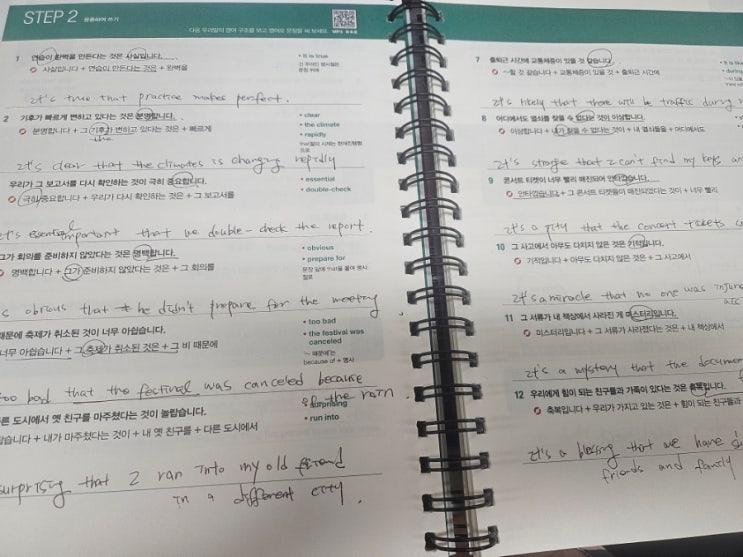 STEP 2 응용하여 쓰기
다음 우리말의 영어 구조를 보고 영어로 문장을 써 보세요. MP3
1 연습이 완벽을 만든다는 것은 사실입니다.
사실입니다 + 연습이 만든다는 것은 + 완벽을
• it is true
It's true that practice makes perfect.
2 기후가 빠르게 변하고 있다는 것은 분명합니다.
분명합니다 + 그 기후가 변하고 있다는 것은 + 빠르게
• clear
• the climate
• rapidly
It's clear that the climates is changing rapidly
우리가 그 보고서를 다시 확인하는 것이 극히 중요합니다.
극히 중요합니다 + 우리가 다시 확인하는 것이 + 그 보고서를
• essential
• double-check
It's essential important that we double-check the report.
그가 회의를 준비하지 않았다는 것은 명백합니다.
명백합니다 + 그가 준비하지 않았다는 것은 + 그 회의를
• obvious
• prepare for
문장 앞에 that을 붙여 명사절로
s obvious that he didn't prepare for the meeting
때문에 축제가 취소된 것이 너무 아쉽습니다.
너무 아쉽습니다 + 그 축제가 취소된 것은 + 그 비 때문에
• too bad
• the festival was canceled
'~ 때문에'는 because of + 명사
too bad that the festival was canceled because
of the rain
른 도시에서 옛 친구를 마주쳤다는 것이 놀랍습니다.
랍습니다 + 내가 마주쳤다는 것이 + 내 옛 친구를 + 다른 도시에서
• surprising
• run into
surprising that I ran into my old friend
in a different city.
7 출퇴근 시간에 교통체증이 있을 것 같습니다.
~할 것 같습니다 + 교통체증이 있을 것 + 출퇴근 시간에
It's likely that there will be traffic during
8 어디에서도 열쇠를 찾을 수 없다는 것이 이상합니다.
이상합니다 + 내가 찾을 수 없다는 것이 + 내 열쇠들을 + 어디에서도
It's strange that I can't find my keys an
9 콘서트 티켓이 너무 빨리 매진되어 안타깝습니다.
안타깝습니다 + 그 콘서트 티켓들이 매진되었다는 것이 + 너무 빨리
It's a pity that the concert tickets
10 그 사고에서 아무도 다치지 않은 것은 기적입니다.
기적입니다 + 아무도 다치지 않은 것은 + 그 사고에서
It's a miracle that no one was injure
acc
11 그 서류가 내 책상에서 사라진 게 미스터리입니다.
미스터리입니다 + 그 서류가 사라졌다는 것은 + 내 책상에서
It's a mystery that the documen
12 우리에게 힘이 되는 친구들과 가족이 있다는 것은 축복입니다.
축복입니다 + 우리가 가지고 있는 것은 + 힘이 되는 친구들과
It's a blessing that we have su
friends and family